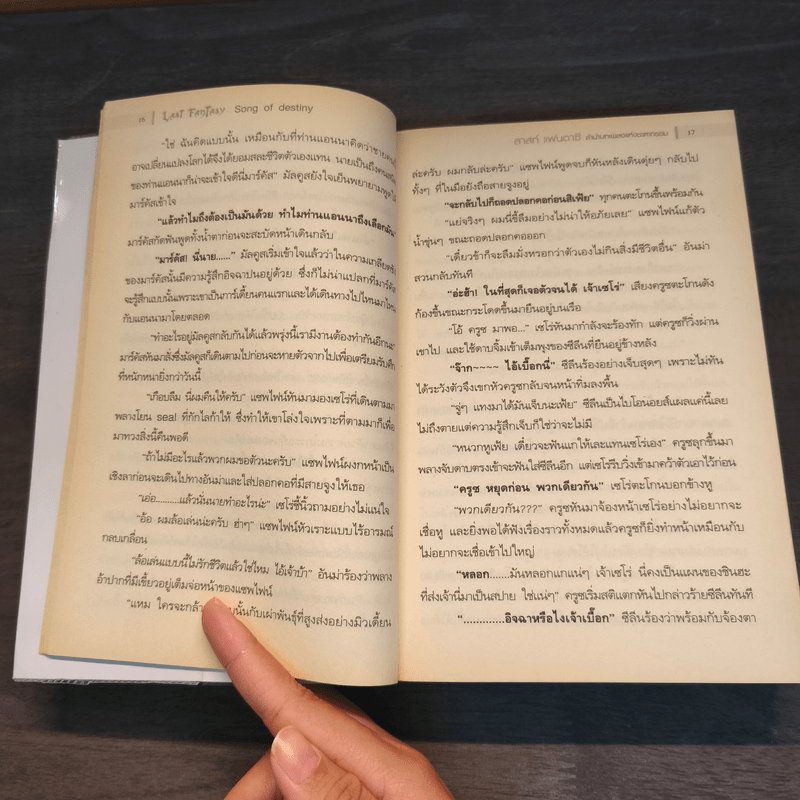 16 | LAST FANTASY Song of destiny
"ใช่ ฉันคิดแบบนั้น เหมือนกับที่ท่านแอนนาคิดว่าชายคน
อาจเปลี่ยนแปลงโลกได้จึงได้ยอมสละชีวิตตัวเองแทน นายเป็นถึงคน
ของท่านแอนนาก็น่าจะเข้าใจดีนี่มาร์คัส" มัลคูสยังใจเย็นพยายามพูดให้
มาร์คัสเข้าใจ
"แล้วทำไมถึงต้องเป็นมันด้วย ทำไมท่านแอนนาถึงเลือกมัน"
มาร์คัสกัดฟันพูดทั้งน้ำตาก่อนจะสะบัดหน้าเดินกลับ
"มาร์คัส! นี่นาย......" มัลคูสเริ่มเข้าใจแล้วว่าในความเกลียดชัง
ของมาร์คัสนั้นมีความรู้สึกอิจฉาปนอยู่ด้วย ซึ่งก็ไม่น่าแปลกที่มาร์คัส
จะรู้สึกแบบนั้นเพราะเขาเป็นการ์เดี้ยนคนแรกและได้เดินทางไปไหนมาไหน
กับแอนนามาโดยตลอด
"ทำอะไรอยู่มัลคูสกลับกันได้แล้วพรุ่งนี้เรามีงานต้องทำกันอีกนะ"
มาร์คัสหันมาสั่งซึ่งมัลคูสก็เดินตามไปก่อนจะหายตัวจากไปเพื่อเตรียมรับศึก
ที่หนักหนายิ่งกว่าวันนี้
"เกือบลืม นี่ผมคืนให้ครับ" แซพไฟน์หันมามองเซโร่ที่เดินตามมา
พลางโยน seal ที่กักไลก้าให้ ซึ่งทำให้เขาโล่งใจเพราะที่ตามมาก็เพื่อ
มาทวงสิ่งนี้คืนพอดี
"ถ้าไม่มีอะไรแล้วพวกผมขอตัวนะครับ" แซพไฟน์ผงกหน้าเป็น
เชิงลาก่อนจะเดินไปทางอันม่าและใส่ปลอกคอที่มีสายจูงให้เธอ
"เอ่อ..........แล้วนั่นนายทำอะไรน่ะ" เซโร่ชี้นิ้วถามอย่างไม่แน่ใจ
"อ้อ ผมล้อเล่นน่ะครับ ฮ่าๆ" แซพไฟน์หัวเราะแบบไร้อารมณ์
กลบเกลื่อน
"ล้อเล่นแบบนี้ไม่รักชีวิตแล้วใช่ไหม ไอ้เจ้าบ้า" อันม่าร้องว่าพลาง
อ้าปากที่มีเขี้ยวอยู่เต็มจ่อหน้าของแซพไฟน์
"แหม ใครจะกล้า บนั้นกับเผ่าพันธุ์ที่สูงส่งอย่างมิวเตี้ยน
ลาสท์ แฟนตาซี ลำนำบทเพลงแห่งชะตากรรม | 17
ล่ะครับ ผมกลับล่ะครับ" แซพไฟน์พูดจบก็หันหลังเดินดุ่ยๆ กลับไป
ทั้งๆ ที่ในมือยังถือสายจูงอยู่
"จะกลับไปก็ถอดปลอกคอก่อนสิเฟ้ย" ทุกคนตะโกนขึ้นพร้อมกัน
"แย่จริงๆ ผมนี่ขี้ลืมอย่างไม่น่าให้อภัยเลย" แซพไฟน์แก้ตัว
น้ำขุ่นๆ ขณะถอดปลอกคอออก
"เดี๋ยวข้าก็จะลืมมั่งหรอกว่าตัวเองไม่กินสิ่งมีชีวิตอื่น" อันม่า
สวนกลับทันที
"อ่ะฮ้า! ในที่สุดก็เจอตัวจนได้ เจ้าเซโร่" เสียงครูซตะโกนดัง
ก้องขึ้นขณะกระโดดขึ้นมายืนอยู่บนเรือ
"โอ้ ครูซ มาพอ..." เซโร่หันมากำลังจะร้องทัก แต่ครูซก็วิ่งผ่าน
เขาไป และใช้ดาบจิ้มเข้าเต็มพุงของซีลีนที่ยืนอยู่ข้างหลัง
"จ๊าก~~~~ ไอ้เบื๊อกนี่" ซีลีนร้องอย่างเจ็บสุดๆ เพราะไม่ทัน
ได้ระวังตัวจึงเขกหัวครูซกลับจนหน้าทิ่มลงพื้น
"จู่ๆ แทงมาได้มันเจ็บนะเฟ้ย" ซีลีนเป็นไปโอนอยส์แผลแค่นี้เลย
ไม่ถึงตายแต่ความรู้สึกเจ็บก็ใช่ว่าจะไม่มี
"หนวกหูเฟ้ย เดี๋ยวจะฟันแกให้เละแทนเซโร่เอง" ครูซลุกขึ้นมา
พลางจับดาบตรงเข้าจะฟันใส่ซีลีนอีก แต่เซโร่รีบวิ่งเข้ามาคว้าตัวเอาไว้ก่อน
"ครูซ หยุดก่อน พวกเดียวกัน" เซโร่ตะโกนบอกข้างหู
"พวกเดียวกัน???" ครูซหันมาจ้องหน้าเซโร่อย่างไม่อยากจะ
เชื่อหู และยิ่งพอได้ฟังเรื่องราวทั้งหมดแล้วครูซก็ยิ่งทำหน้าเหมือนกับ
ไม่อยากจะเชื่อเข้าไปใหญ่
"หลอก......มันหลอกแกแน่ๆ เจ้าเซโร่ นี่คงเป็นแผนของชินฮะ
ที่ส่งเจ้านี่มาเป็นสปาย ใช่แน่ๆ" ครูซเริ่มสติแตกหันไปกล่าวร้ายซีลีนทันที
".............อิจฉาหรือไงเจ้าเบื๊อก" ซีลีนร้องว่าพร้อมกับจ้องตา